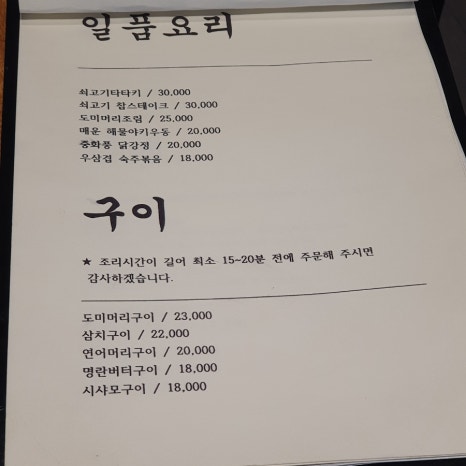 일품요리
쇠고기타타키 / 30,000
쇠고기 찹스테이크 / 30,000
도미머리조림 / 25,000
매운 해물야키우동 / 20,000
중화풍 닭강정 / 20,000
우삼겹 숙주볶음 / 18,000
구이
★ 조리시간이 길어 최소 15~20분 전에 주문해 주시면
감사하겠습니다.
도미머리구이 / 23,000
삼치구이 / 22,000
연어머리구이 / 20,000
명란버터구이 / 18,000
시샤모구이 / 18,000